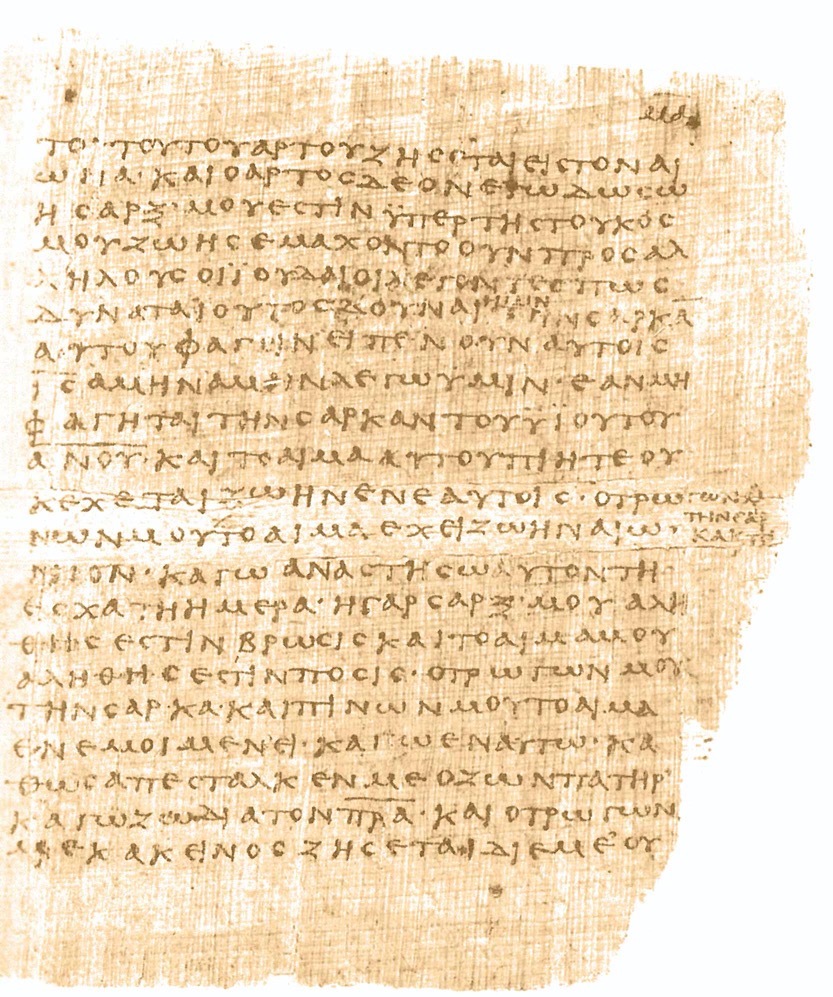 μα
το· τουτουαρτουζησεταιειστοναι
ωνα· καιοαρτοσδεονεγωδωσω
ησαρξ· μουεστινϋπερτηστουκοσ
μουζωησεμαχοντοουνπροσαλ
ληλουσοιϊουδαιοιλεγοντεσπωσ
δυναταιουτοσδουναιημιντηνσαρκα
αυτουφαγεινειπενουναυτοισ
ισαμηναμηνλεγωϋμιν· εανμη
φαγηταιτηνσαρκαντουϋϊουτου
ανου· καιτοαιμααυτουπιητεου
κεχεταιζωηνενεαυτοισ· οτρω
νωνμουτοαιμαεχειζωηναιω
νιον· καγωαναστησωαυτοντη
εσχατηημερα· ηγαρσαρξ· μουαλη
θησεστινβρωσισκαιτοαιμαμου
αληθησεστινποσισ· οτρωγωνμου
τηνσαρκακαιπινωνμουτοαιμα
ενεμοιμενει· καγωεναυτω· κα
θωσαπεσταλκενμεοζωνπατηρ
καγωζωδιατονπρα· καιοτρωγων
μεκακεινοσζησεταιδιεμεου